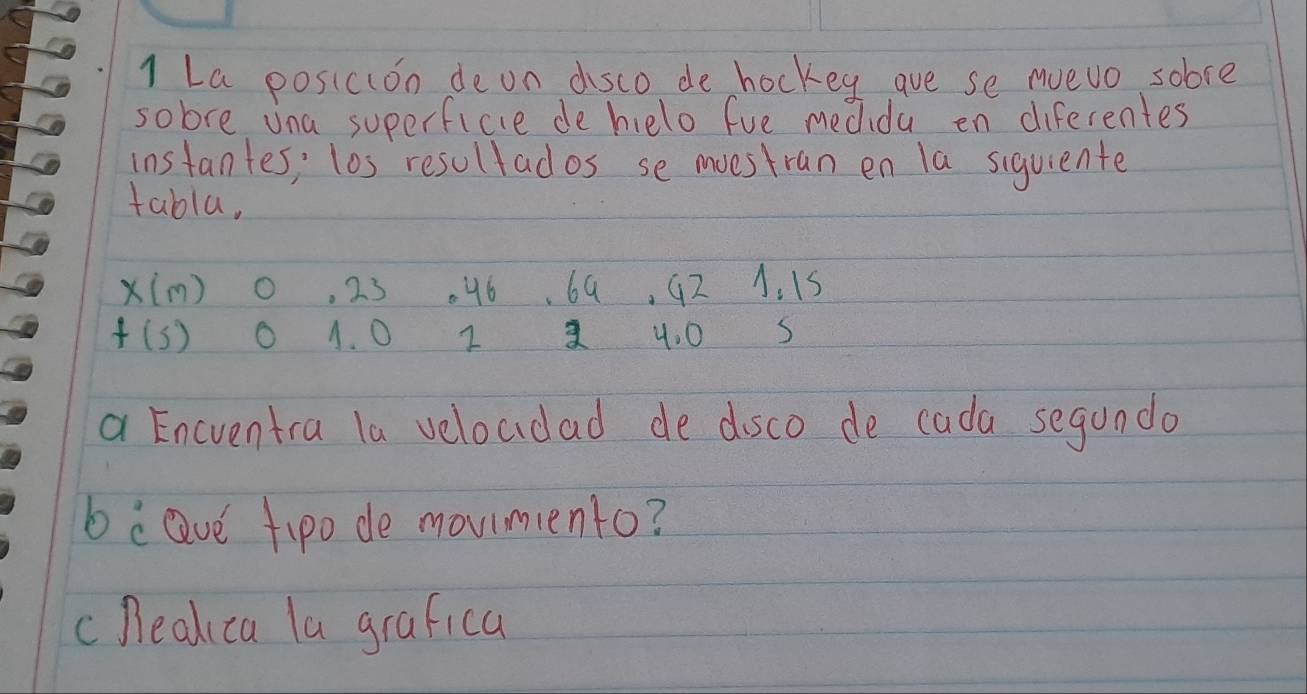 1 La posición de un disco de hockey que se muevo sobre
sobre una superficie de hielo fue medida en diferentes
instantes; los resultados se muestran en la siguiente
tabla.
x(m) 0 .23 .46 .69 .92 1.15
t(s) 0 1.0 2 3 4.0 5
a Encuentra la velocidad de disco de cada segundo
b ¿Qué tipo de movimiento?
c Realiza la grafica